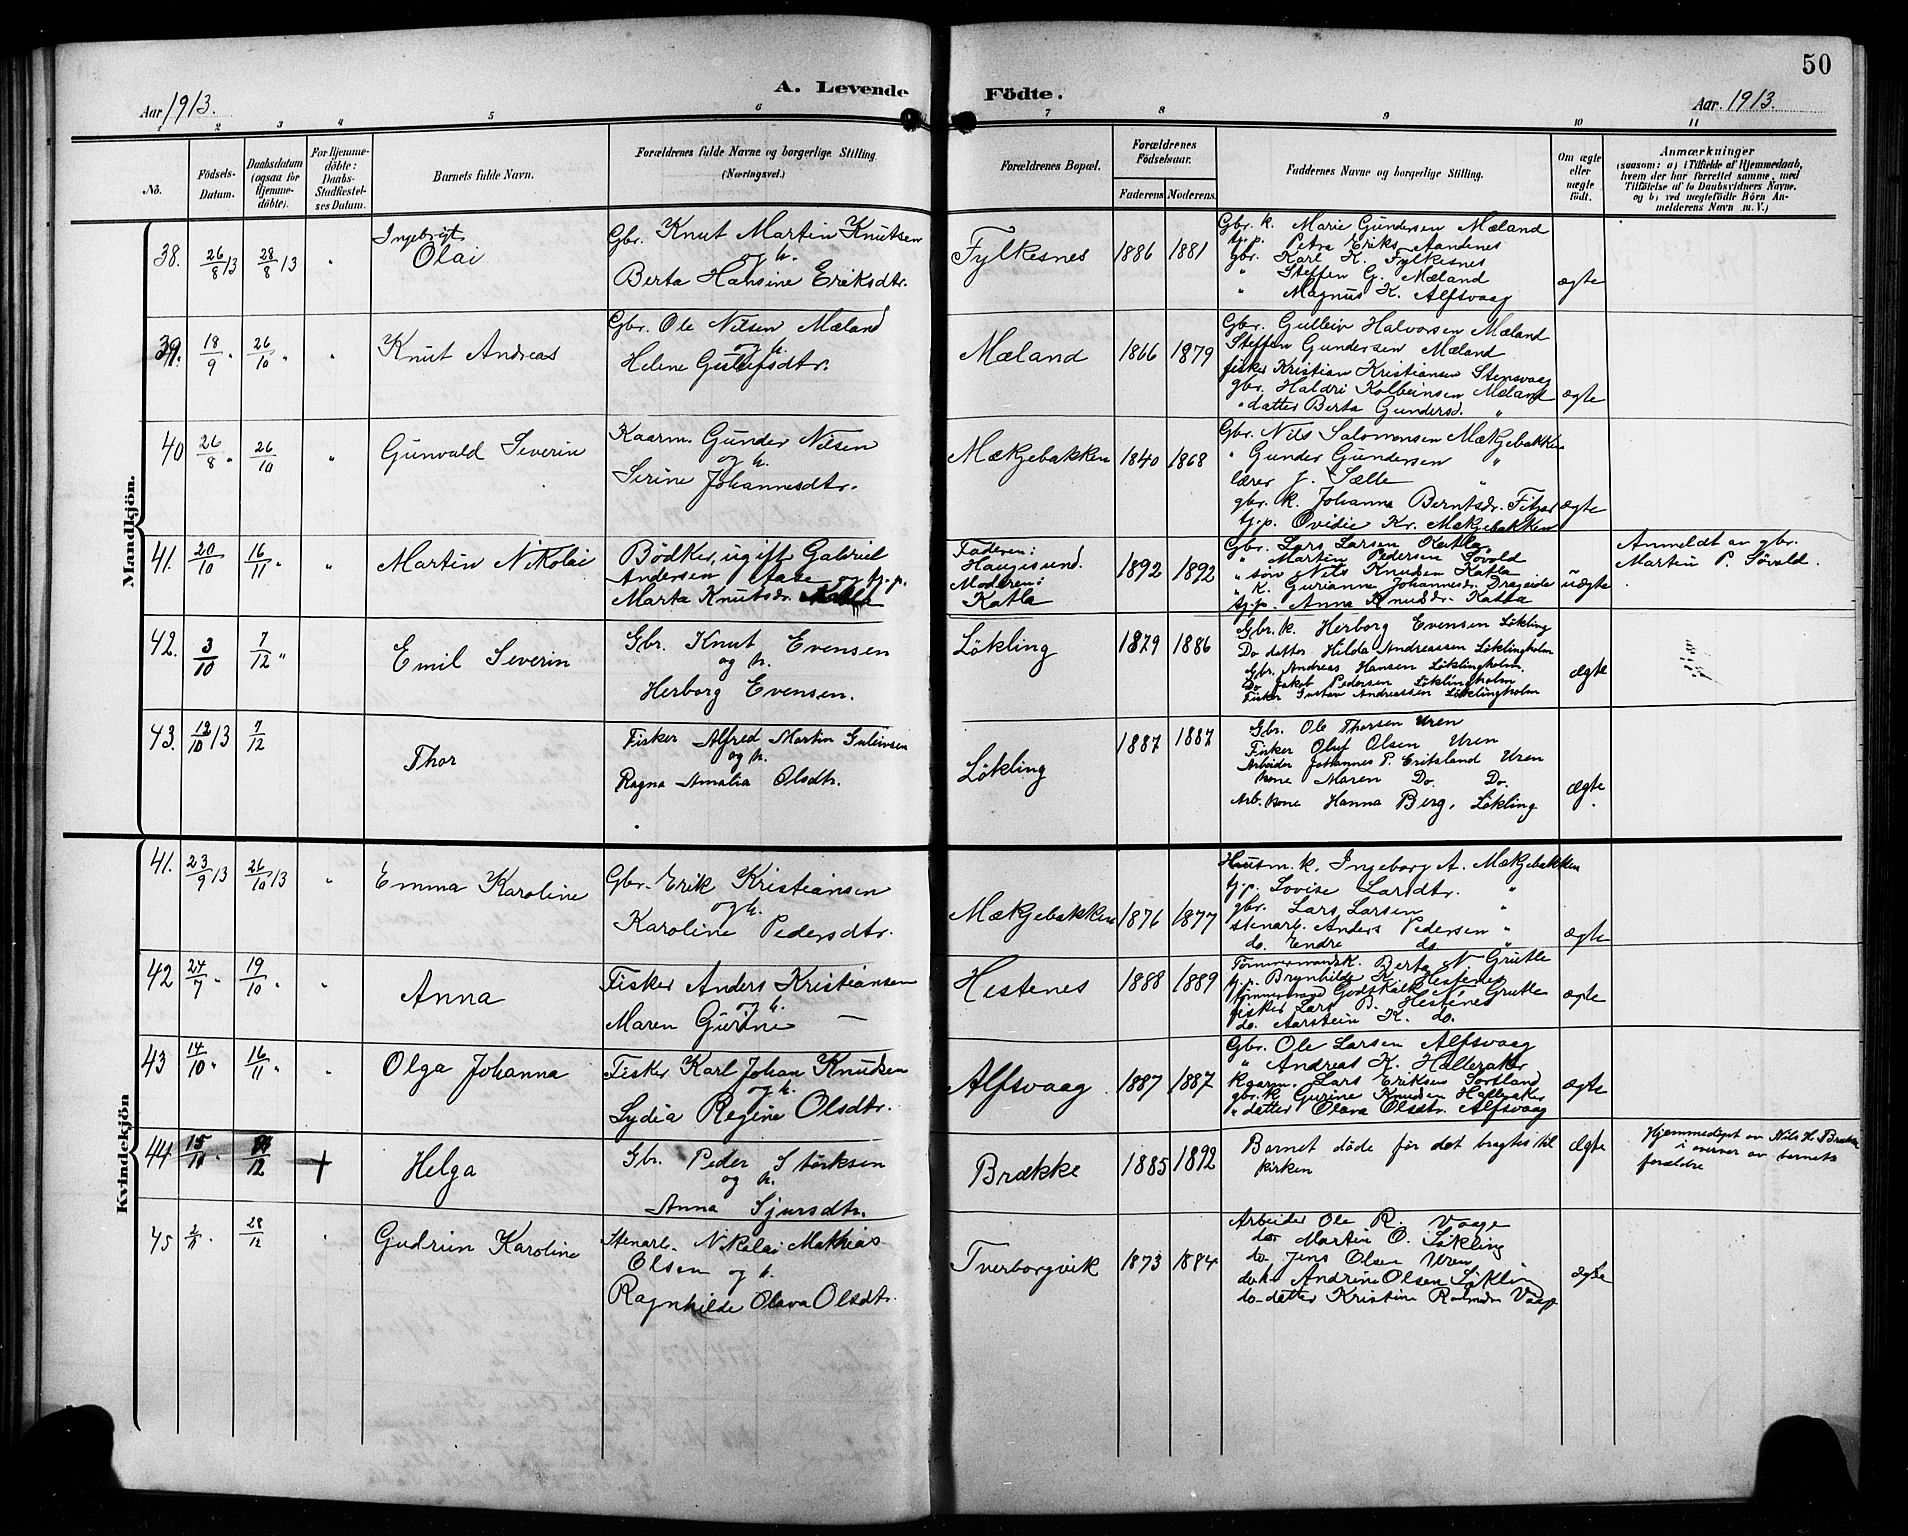 50
A. Levende Födte.
Aar 1913.
Aar 1913.
2 3 4 5 6 7 8 9 10 11
No.
Födsels-Datum.
Daabsdatum (ogsaa for Hjemme-döbte).
For Hjemme-döbte: Daabs-Stadfæstel-ses Datum.
Barnets fulde Navn.
Forældrenes fulde Navne og borgerlige Stilling. (Næringsvei.)
Forældrenes Bopæl.
Forældrenes Födselsaar.
Faderens Moderens
Faddernes Navne og borgerlige Stilling.
Om ægte eller uægte födt.
Anmærkninger
(saasom: a) i Tilfælde af Hjemmedaab, hvem der har forrettet samme, med Tilföielse af to Daabsvidners Navne, og b) ved uægtefödte Börn An-melderens Navn m. V.)
Mandkjön.
38. 26/8 13 28/8 13 "
Ingebrigt
Olai
Gbr. Knut Martin Knutsen
og h.
Berta Hansine Eriksdtr.
Fylkesnes 1886 1881
Gbr. k. Marie Gundersen Mæland
tj.p. Petra Eriks. Aandenes
gbr. Karl K. Fylkesnes
" Steffen G. Mæland
" Magnus K. Alfsvaag
ægte
39. 18/9 " 26/10 " "
Knut Andreas
Gbr. Ole Nilsen Mæland
og h.
Helene Gulleifsdtr.
Mæland 1866 1879
Gbr. Gulleiv Halvorsen Mæland
Steffen Gundersen Mæland
fisker Kristian Kristiansen Stensvaag
gbr. Haldri Kolbeinsen Mæland
" datter Berta Gundersd. "
ægte
40 26/8 " 26/10 "
Gunvald Severin
Kaarm. Gunder Nilsen
og h.
Serine Johannesdtr.
Mækjebakken 1840 1868
Gbr. Nils Salomonsen Mækjebakken
" Gunder Gundersen "
lærer J. Sælle "
gbr. k. Johanna Berntsdr. Fitjar
tj.p. Ovidie Kr. Mækjebakken
ægte
41. 20/10 16/11 " "
Martin Nikolai
Bödker, ugift Gabriel
Andersen Aase og tj.p.
Marta Knutsdr.
Faderen:
Haugesund.
Moderen:
Katla
1892 1892
Gbr. Lars Larsen Katla
" Martin Pedersen Søvold
" søn Nils Knudsen Katla
" k. Gurianna Johannesdr. Drageide
tj.p. Anna Knutsdr. Katla
uægte
Anmeldt av gbr.
Martin P. Søvold.
42. 3/10 7/12 "
Emil Severin
Gbr. Knut Evensen
og h.
Herborg Evensen.
Løkling 1879 1886
Gbr. k. Herborg Evensen Løkling
Do datter Hilda Andreassen Løklingholm
Gbr. Andreas Hansen Løklingholm
Do Jakob Pedersen Løklingholm
Fisker Gustav Andreassen Løklingholm
ægte
43. 12/10 13 7/12
Thor
Fisker Alfred Martin
og h.
Ragna Amalia Olsdtr.
Løkling
1887 1887
Gbr. Ole Thorsen Uren
Fisker Oluf Olsen Uren
Arbeider Johannes P. Eritsland Uren
kone Maren Do. Do.
Arb. kone Hanna Berg, Løkling
ægte
Kvindekjön
41. 23/9 13 26/10 13 "
Emma Karoline
Gbr. Erik Kristiansen
og h.
Karoline Pedersdtr.
Mækjebakken 1876 1877
Husm. k. Ingeborg A. Mækjebakken
tj.p. Lovise Larsdtr. "
gbr. Lars Larsen "
stenarb. Anders Pedersen "
do. Endre do "
ægte
42 24/7 " 19/10 " "
Anna
Fisker Anders Kristiansen
og h.
Maren Gurine —
Hestenes 1888 1889
Tømmermandsk. Berta N Grutle
tj.p. Brynhilde K. Hestenes
tømmermand Godtskalk N. Grutle
fisker Lars B. Hestenes
do. Aarstein K. do.
ægte
43 14/10 " 16/11 " "
Olga Johanna
Fisker Karl Johan Knudsen
og h.
Lydia Regine Olsdtr.
Alfsvaag 1887 1887
Gbr. Ole Larsen Alfsvaag
" Andreas K. Halleraker
kaarm. Lars Eriksen Sortland
gbr. k Gurine Knudsen Halleraker
" datter Olava Olsdtr. Alfsvaag
ægte
44 15/11 " /12 +
Helga
Gbr. Peder Størksen
og h.
Anna Sjursdtr.
Brække 1885 1892
Barnet døde før det bragtes til
kirken
Ægte
Hjemmedøpt av Nils H. Brække
i nærvær av barnets
forældre
45 2/11 " 28/12 "
Gudrun Karoline
Stenarb. Nikolai Mathias
Olsen og h.
Ragnhilde Olava Olsdtr.
Tverborgvik 1873 1884
Arbeider Ole R. Vaage
do Martin O. Løkling
do. Jens Olsen Uren
do k. Andrine Olsen Løkling
do-datter Kristine Vaage
ægte